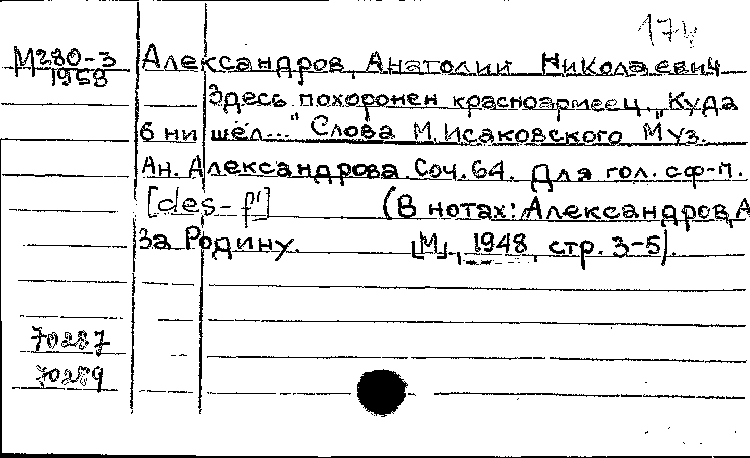 174
М280-3 Александров, Анатолий Николаевич
1958
Здесь похоронен красноармеец. "Куда
б ни шёл..." Слова М. Исаковского. Муз.
Ан. Александрова. Соч. 64. Для гол. с ф-п.
[des-f¹] (В нотах: Александров, А
За Родину. [М], 1948, стр. 3-5).
70287
70289